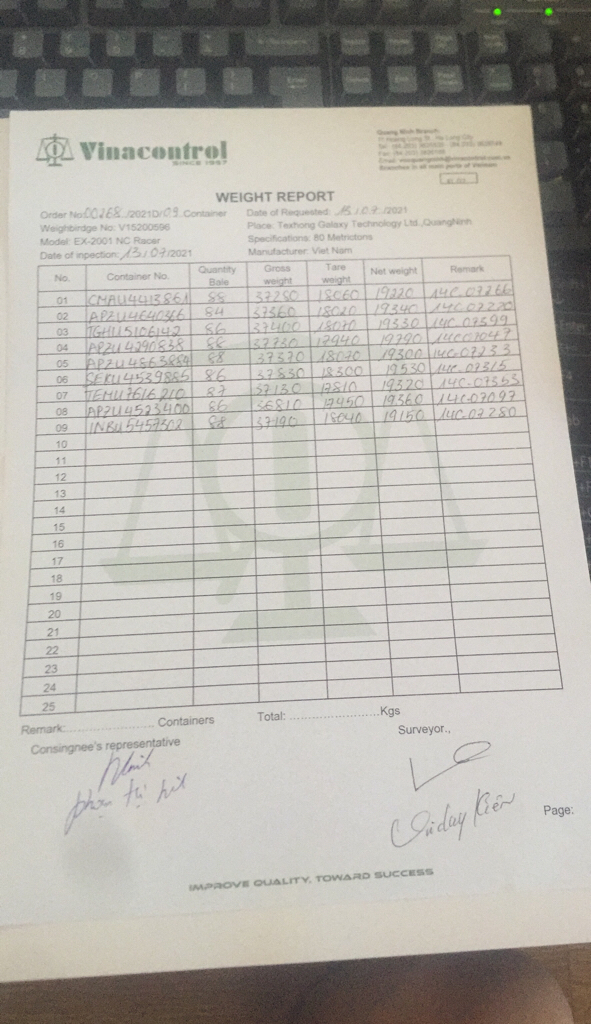 Vinacontrol
SINCE 1957
Quang Ninh Branch
WEIGHT REPORT
Order No: 00268 /2021D/09 Container
Date of Requested: 13/07/2021
Weighbirdge No: V15200596
Place: Texhong Galaxy Technology Ltd.,QuangNinh
Model: EX-2001 NC Racer
Specifications: 80 Metrictons
Date of inpection: 13/07/2021
Manufacturer: Viet Nam
No. Container No. Quantity Bale Gross weight Tare weight Net weight Remark
01 CMAU4413861 88 37280 18060 19220 14C-07266
02 APZU4640366 84 37360 18020 19340 14C-07220
03 TGHU5106142 86 37400 18070 19330 14C-07399
04 APZU4290838 88 37730 17940 19790
05 88 37370 18070 19300 14C-07233
06 SEKU4539885 86 37830 18300 19530 14C-07315
07 TEMU7616210 87 37130 17810 19320 14C-07363
08 APZU4523400 86 36810 17450 19360 14C-07097
09 INBU5457302 88 37190 18040 19150 14C-07280
10
11
12
13
14
15
16
17
18
19
20
21
22
23
24
25
Remark: Containers
Total: Kgs
Consingnee's representative
Surveyor.,
Page:
IMPROVE QUALITY, TOWARD SUCCESS